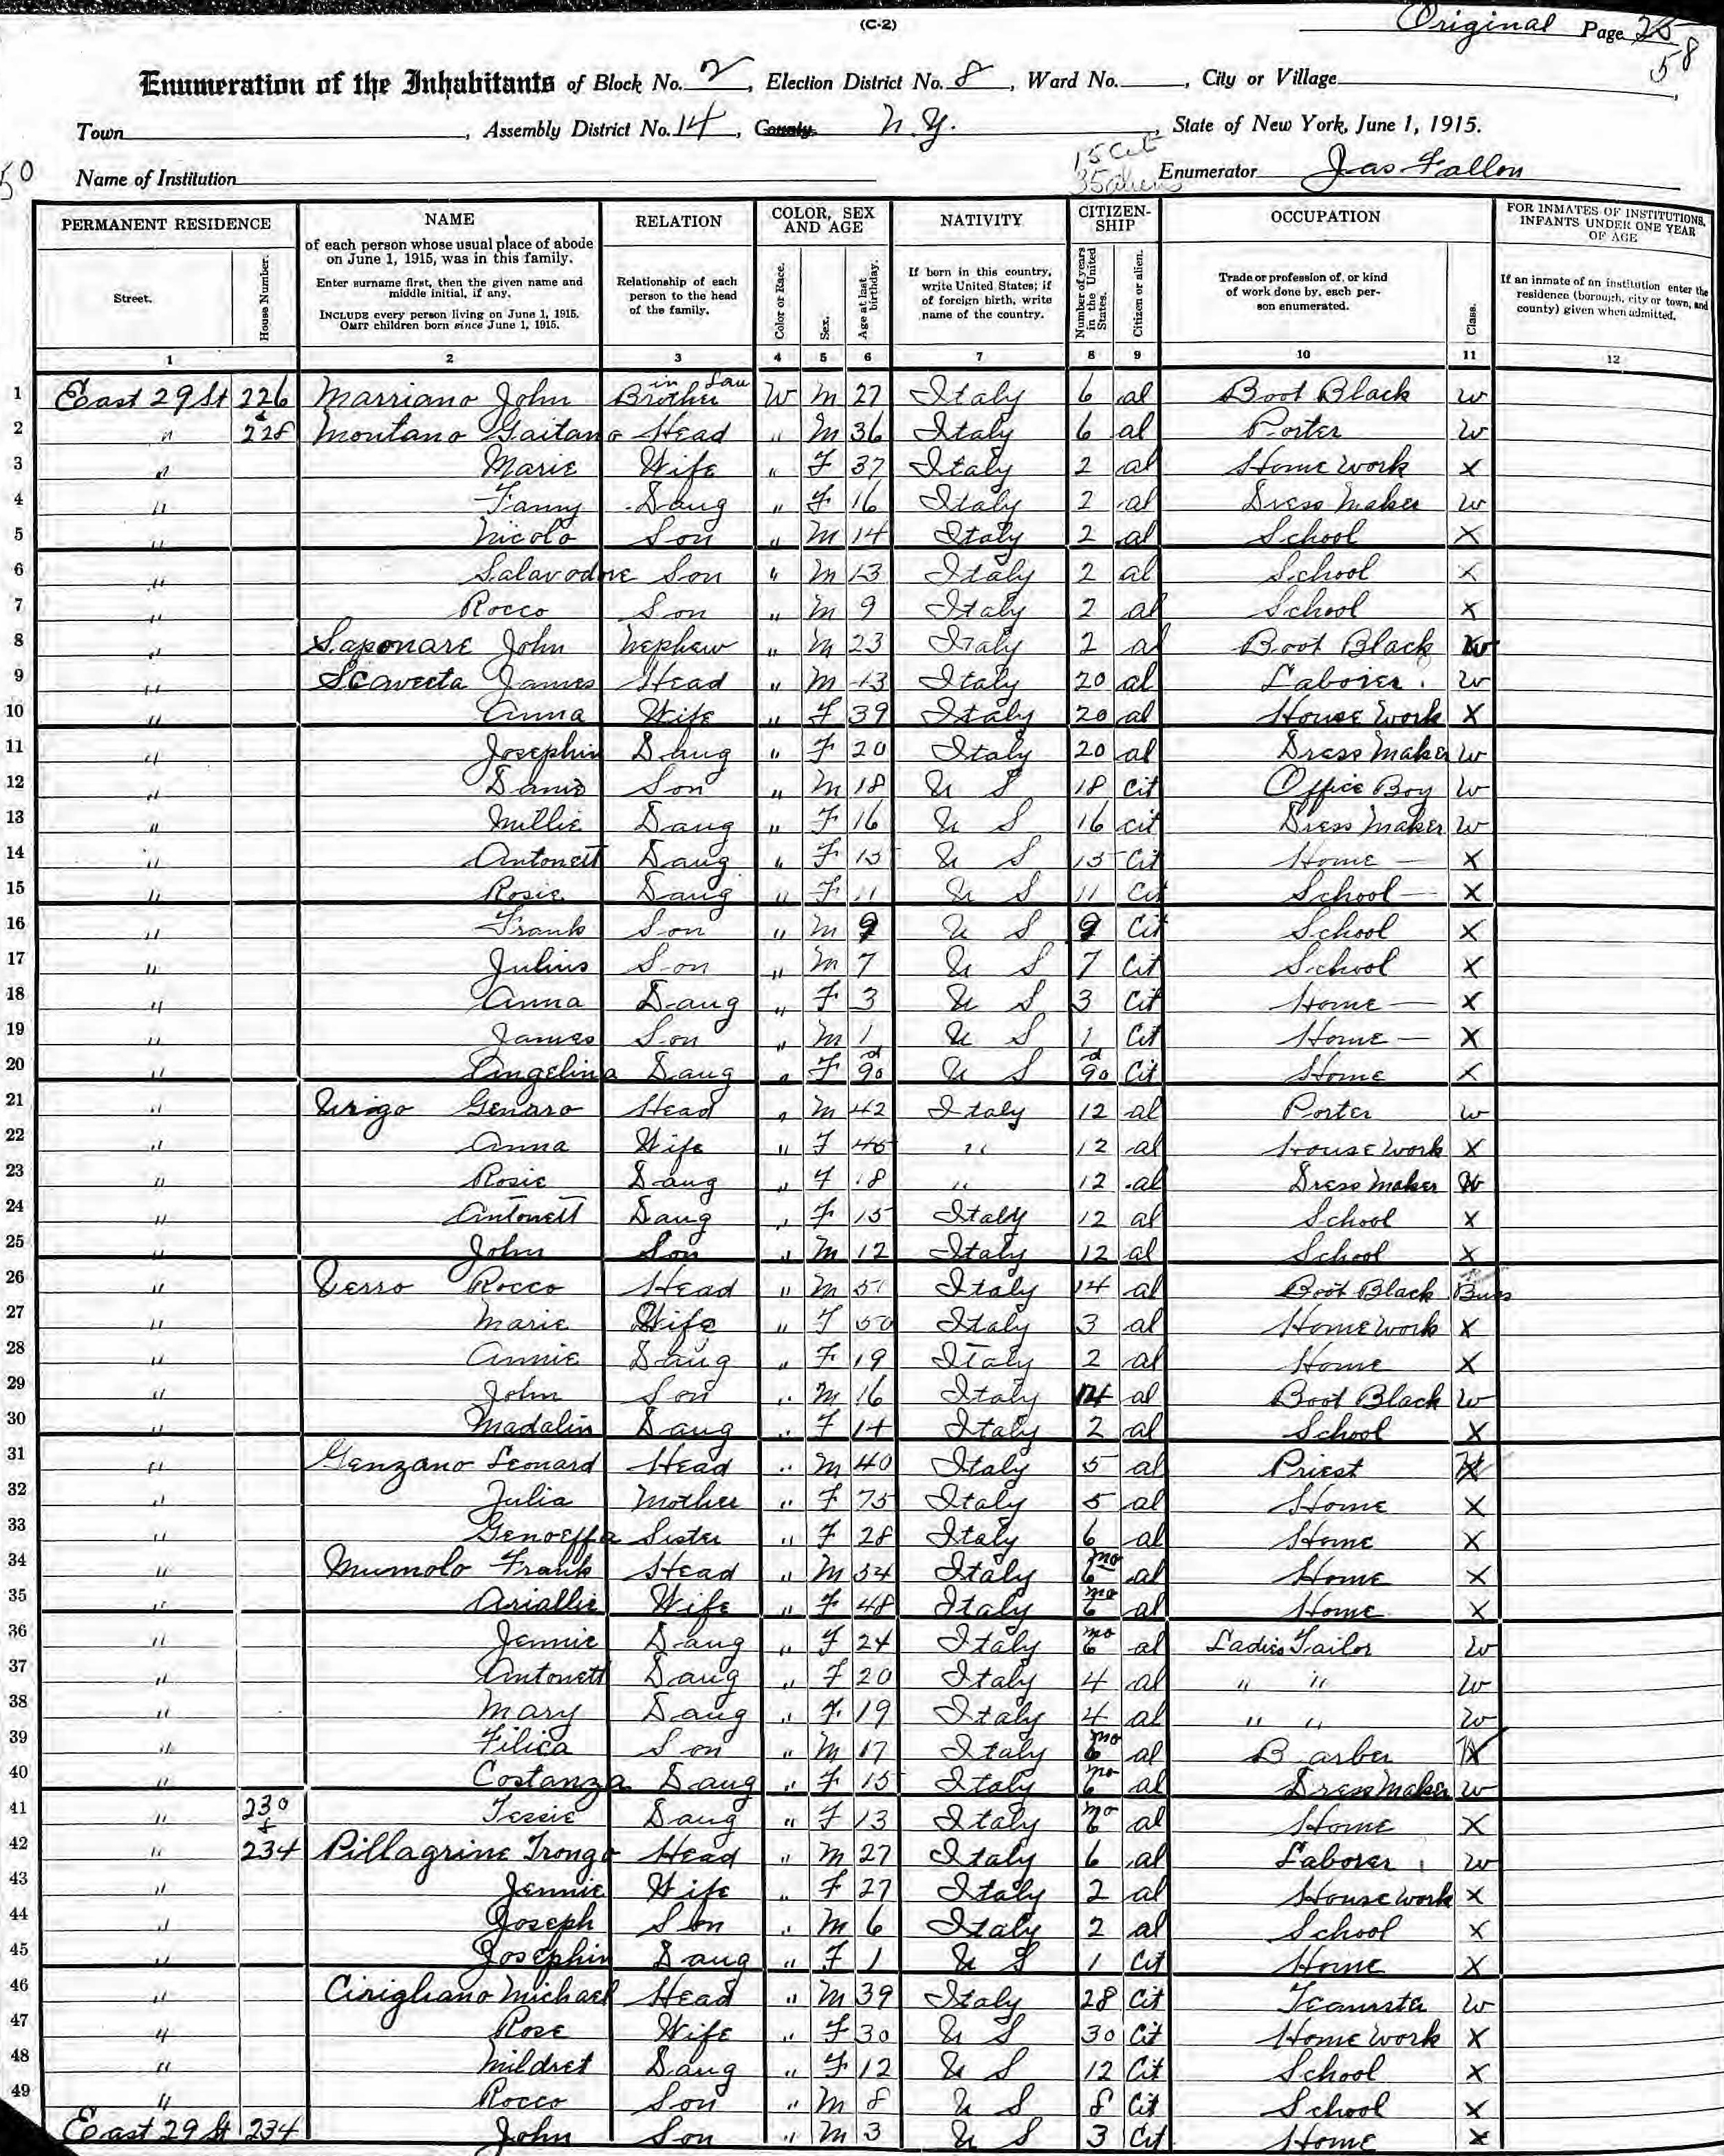 (C-2)
Original Page 25
58
Enumeration of the Inhabitants of Block No. 2, Election District No. 8, Ward No. , City or Village ,
Town , Assembly District No. 14, County N.Y. , State of New York, June 1, 1915.
50 Name of Institution 15 Cit 35 aliens Enumerator Jas Fallon
PERMANENT RESIDENCE NAME RELATION COLOR, SEX AND AGE NATIVITY CITIZEN-SHIP OCCUPATION FOR INMATES OF INSTITUTIONS, INFANTS UNDER ONE YEAR OF AGE
Street. House Number. of each person whose usual place of abode on June 1, 1915, was in this family. Enter surname first, then the given name and middle initial, if any. INCLUDE every person living on June 1, 1915. OMIT children born since June 1, 1915. Relationship of each person to the head of the family. Color or Race. Sex. Age at last birthday. If born in this country, write United States; if of foreign birth, write name of the country. Number of years in the United States. Citizen or alien. Trade or profession of, or kind of work done by, each person enumerated. Class. If an inmate of an institution enter the residence (borough, city or town, and county) given when admitted.
1 2 3 4 5 6 7 8 9 10 11 12
1 East 29 St 226 Marriano John Brother in Law W M 27 Italy 6 al Boot Black W
2 " & 228 Montano Gaitano Head " M 36 Italy 6 al Porter W
3 " Marie Wife " F 37 Italy 2 al Home Work X
4 " Fanny Daug " F 16 Italy 2 al Dress Maker W
5 " Nicolo Son " M 14 Italy 2 al School X
6 " Salavodore Son " M 13 Italy 2 al School X
7 " Rocco Son " M 9 Italy 2 al School X
8 " Saponare John Nephew " M 23 Italy 2 al Boot Black W
9 " Scaveeta James Head " M 43 Italy 20 al Laborer W
10 " Anna Wife " F 39 Italy 20 al House Work X
11 " Josephin Daug " F 20 Italy 20 al Dress Maker W
12 " Son " M 18 U S 18 Cit Office Boy W
13 " Millie Daug " F 16 U S 16 Cit Dress Maker W
14 " Antonett Daug " F 15 U S 15 Cit Home — X
15 " Rosie Daug " F 11 U S 11 Cit School — X
16 " Frank Son " M 9 U S 9 Cit School X
17 " Julius Son " M 7 U S 7 Cit School X
18 " Anna Daug " F 3 U S 3 Cit Home — X
19 " James Son " M 1 U S 1 Cit Home — X
20 " Angelina Daug " F 90 d U S 90 d Cit Home X
21 " Urigo Genaro Head " M 42 Italy 12 al Porter W
22 " Anna Wife " F 45 " 12 al House Work X
23 " Rosie Daug " F 18 " 12 al Dress Maker W
24 " Antonett Daug " F 15 Italy 12 al School X
25 " John Son " M 12 Italy 12 al School X
26 " Verro Rocco Head " M 51 Italy 14 al Boot Black Buis
27 " Marie Wife " F 50 Italy 3 al Home Work X
28 " Annie Daug " F 19 Italy 2 al Home X
29 " John Son " M 16 Italy 14 al Boot Black W
30 " Madalin Daug " F 14 Italy 2 al School X
31 " Genzano Leonard Head " M 40 Italy 5 al Priest
32 " Julia Mother " F 75 Italy 5 al Home X
33 " Genoeffa Sister " F 28 Italy 6 al Home X
34 " Mumolo Frank Head " M 54 Italy 6 mo al Home X
35 " Ariallie Wife " F 48 Italy 6 mo al Home X
36 " Jennie Daug " F 24 Italy 6 mo al Ladies Tailor W
37 " Antonett Daug " F 20 Italy 4 al " " W
38 " Mary Daug " F 19 Italy 4 al " " W
39 " Filica Son " M 17 Italy 6 mo al Barber
40 " Costanza Daug " F 15 Italy 6 mo al Dress Maker W
41 " 230 Tessie Daug " F 13 Italy 6 mo al Home X
42 " & 234 Pillagrine Trongo Head " M 27 Italy 6 al Laborer W
43 " Jennie Wife " F 27 Italy 2 al House Work X
44 " Joseph Son " M 6 Italy 2 al School X
45 " Josephin Daug " F 1 U S 1 Cit Home X
46 " Cirigliano Michael Head " M 39 Italy 28 Cit Teamster W
47 " Rose Wife " F 30 U S 30 Cit Home Work X
48 " Mildret Daug " F 12 U S 12 Cit School X
49 " Rocco Son " M 8 U S 8 Cit School X
East 29 St 234 John Son " M 3 U S 3 Cit Home X